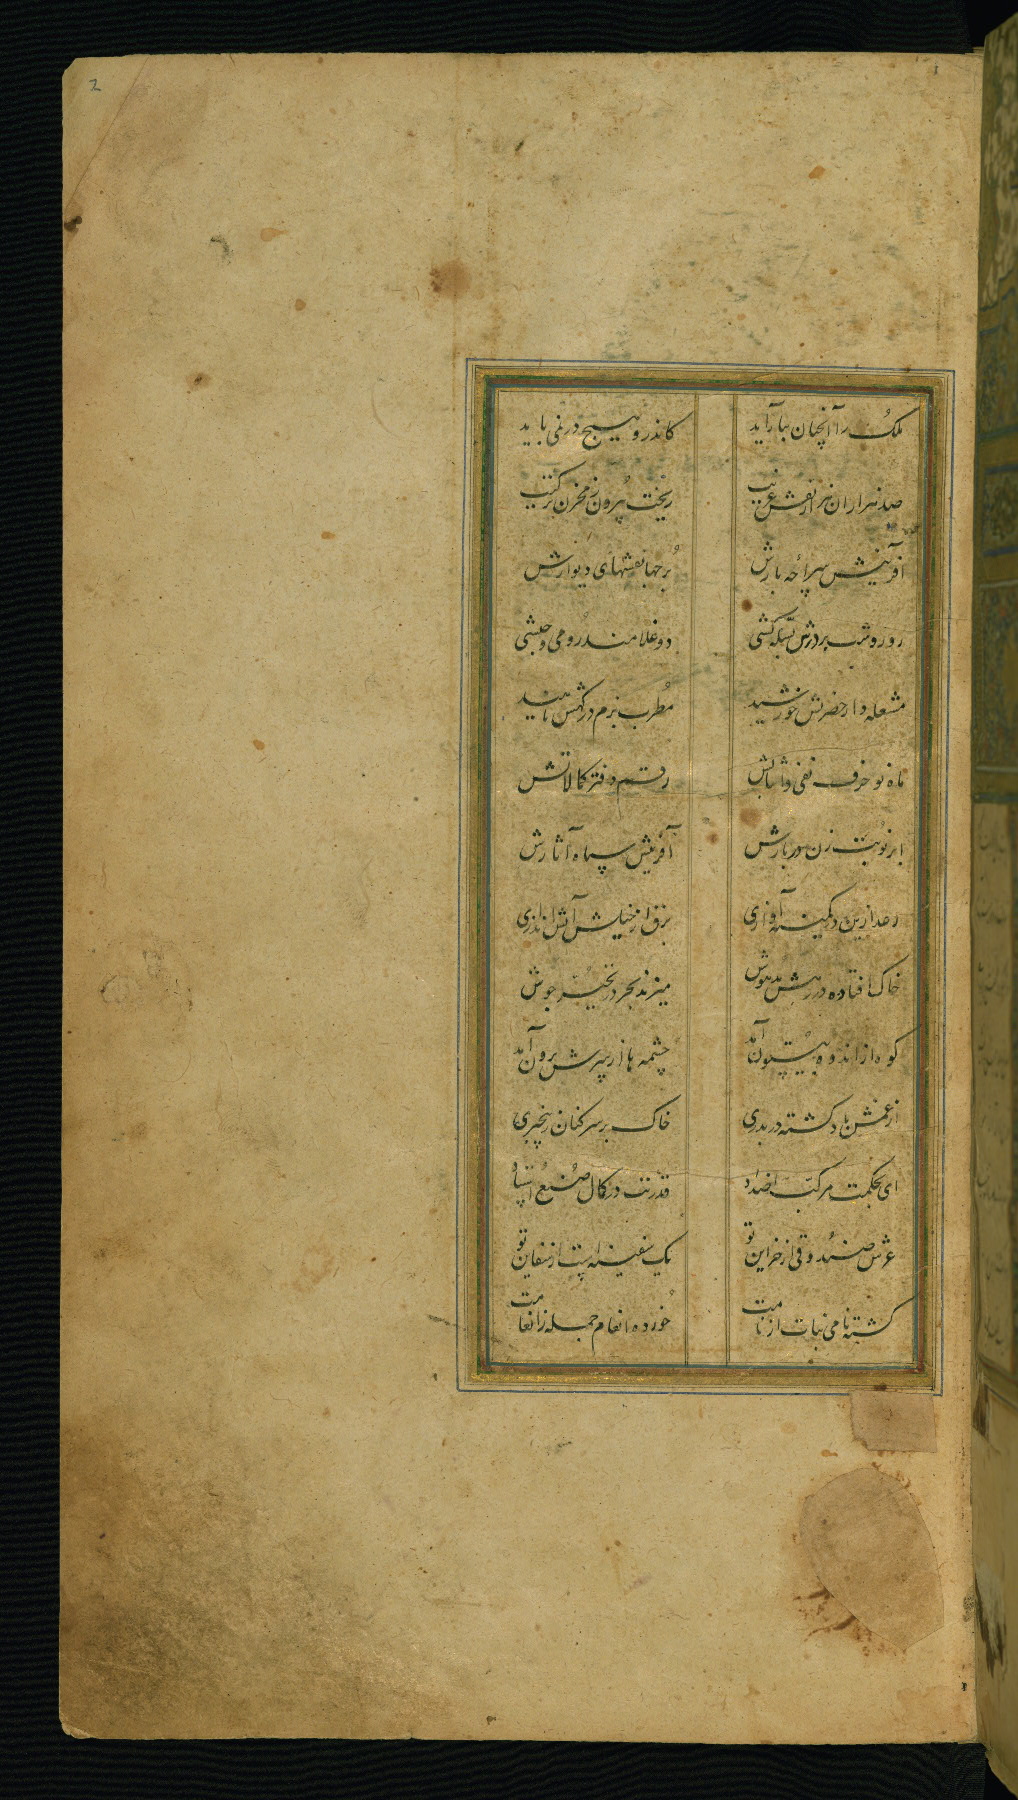 2
ملک را آنچنان بیاراید کاندرو هیچ در نمی باید
صد هزاران هزار نقش غریب ریخت بیرون ز مخزن ترکیب
آفرینش سراچه بارش برجها نقشهای دیوارش
روز و شب بر درش کشی دو غلامند رومی و حبشی
مشعله دار حضرتش خورشید مطرب بزم درگهش ناهید
ماه نو حرف نفی رقم دفتر کمالاتش
ابر نوبت زن در بارش آفرینش سپاه آثارش
رعد ازین در کمینه آوازی برق از خیلش آتش اندازی
خاک افتاده در رهش مدهوش میزند بحر در تحیر جوش
کوه از اندوه بیستون آمد چشمه ها از سرش برون آمد
از غمش باد گشته در بدری خاک بر سر کنان ز بیخبری
ای بحکمت مرکب اضداد قدرتت در کمال صنع
عرش صندوقی از خزاین تو یک سفینه است از سفاین تو
گشته نامی نبات از نامت خورده انعام جمله ز انعامت